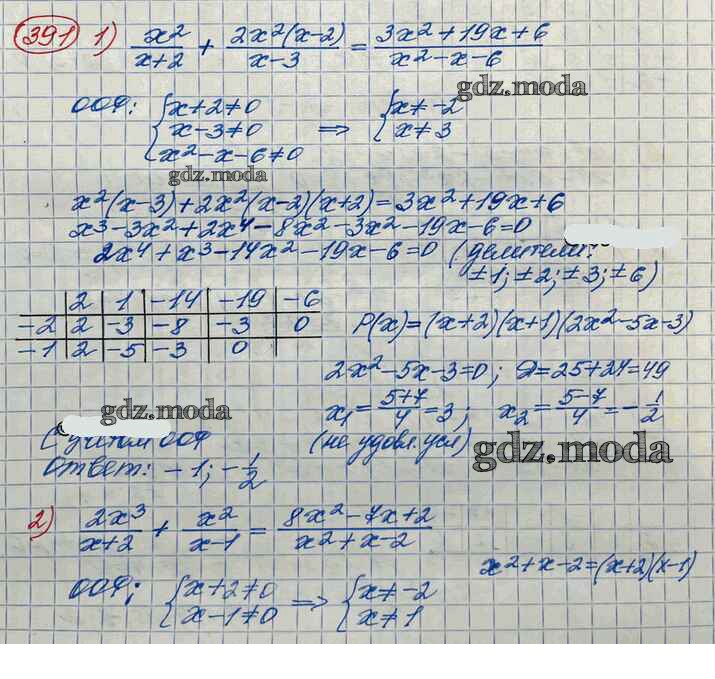 391 1) x²/(x+2) + 2x²(x-2)/(x-3) = (3x²+19x+6)/(x²-x-6)
gdz.moda
ООФ: { x+2≠0 ⇒ { x≠-2
x-3≠0 x≠3
x²-x-6≠0
gdz.moda
x²(x-3)+2x²(x-2)(x+2)=3x²+19x+6
x³-3x²+2x⁴-8x²-3x²-19x-6=0
2x⁴+x³-14x²-19x-6=0 (делители:
±1; ±2; ±3; ±6)
2 | 1 | -14 | -19 | -6
-2 | 2 | -3 | -8 | -3 | 0
-1 | 2 | -5 | -3 | 0
P(x)=(x+2)(x+1)(2x²-5x-3)
2x²-5x-3=0; Д=25+24=49
x₁=(5+7)/4=3; x₂=(5-7)/4=-1/2
(не удовл. усл)
gdz.moda
С учётом ООФ
gdz.moda
Ответ: -1; -1/2
2) 2x³/(x+2) + x²/(x-1) = (8x²-7x+2)/(x²+x-2)
x²+x-2=(x+2)(x-1)
ООФ: { x+2≠0 ⇒ { x≠-2
x-1≠0 x≠1